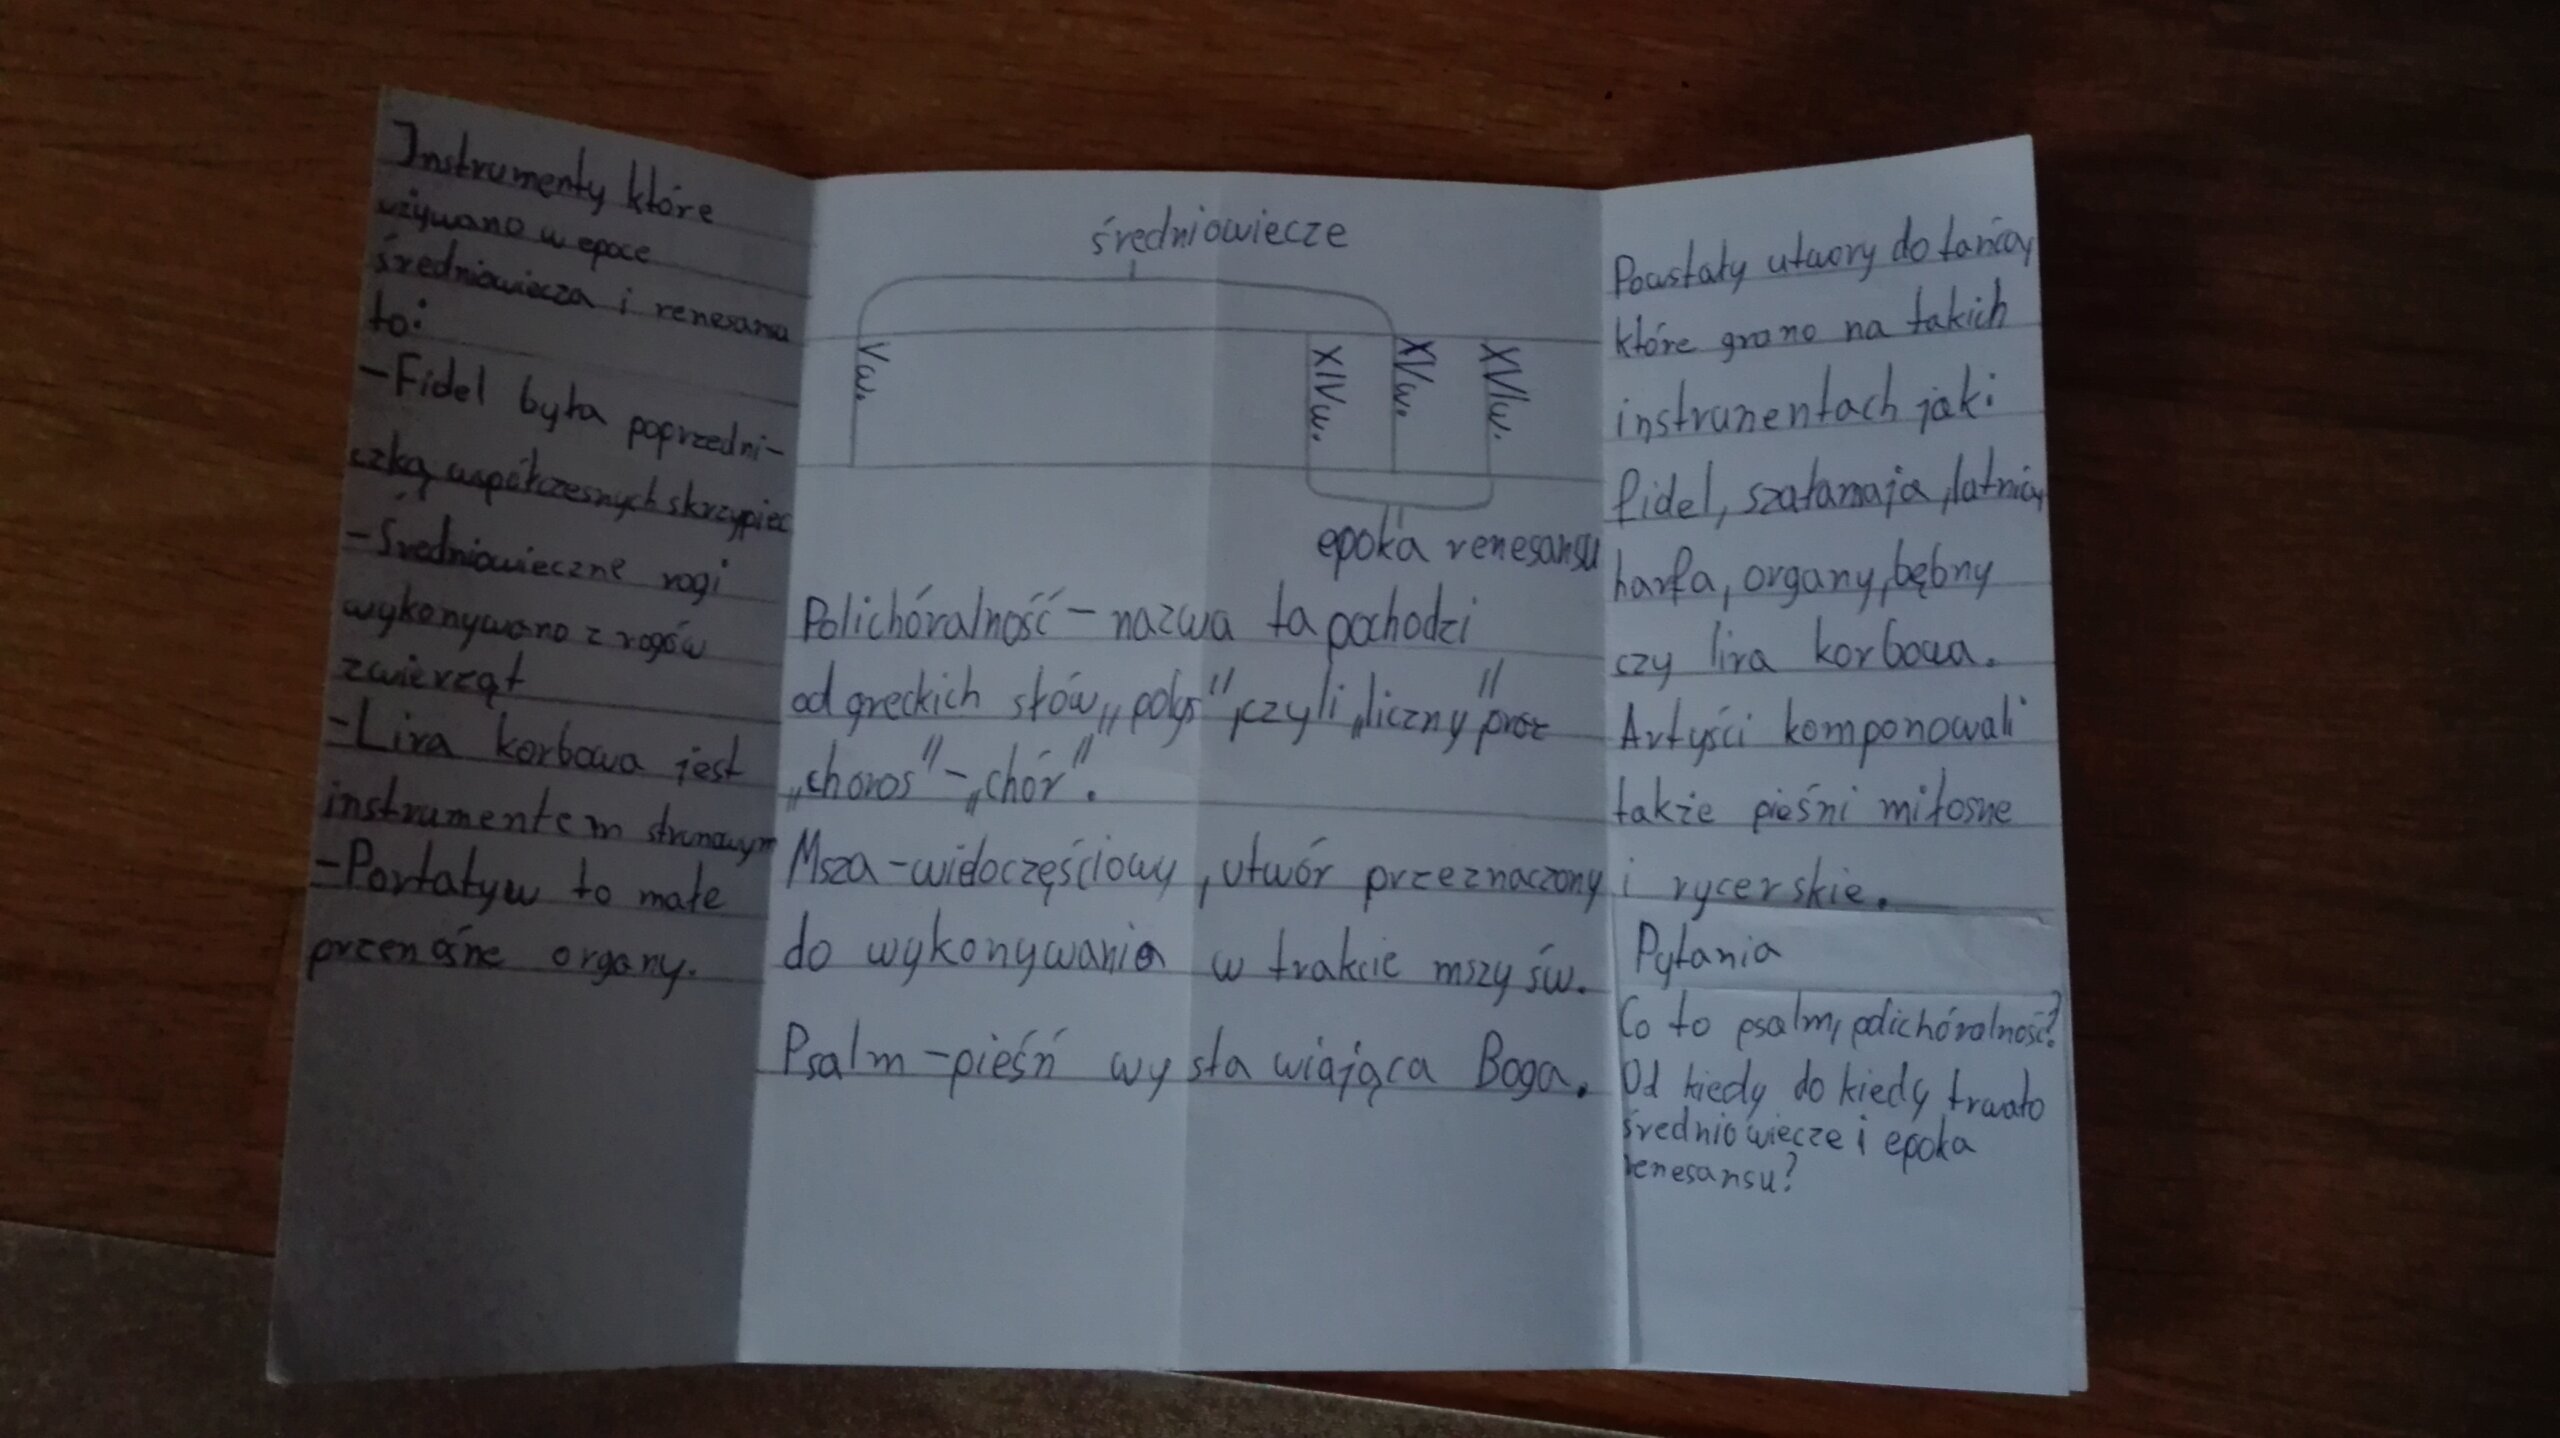 Instrumenty które
używano w epoce
średniowiecza i renesansu
to:
-Fidel była poprzedni-
czką współczesnych skrzypiec
-Średniowieczne rogi
wykonywano z rogów
zwierząt
-Lira korbowa jest
instrumentem strunowym
-Portatyw to małe
przenośne organy.
średniowiecze
Vw.
XIVw.
XVw.
XVIw.
epoka renesansu
Polichóralność - nazwa ta pochodzi
od greckich słów „polys", czyli „liczny" oraz
„choros" - „chór".
Msza - wieloczęściowy, utwór przeznaczony
do wykonywania w trakcie mszy św.
Psalm - pieśń wysławiająca Boga.
Powstały utwory do tańca,
które grano na takich
instrumentach jak:
fidel, szałamaja, lutnia,
harfa, organy, bębny
czy lira korbowa.
Artyści komponowali
także pieśni miłosne
i rycerskie.
Pytania
Co to psalm, polichóralność?
Od kiedy do kiedy trwało
średniowiecze i epoka
renesansu?